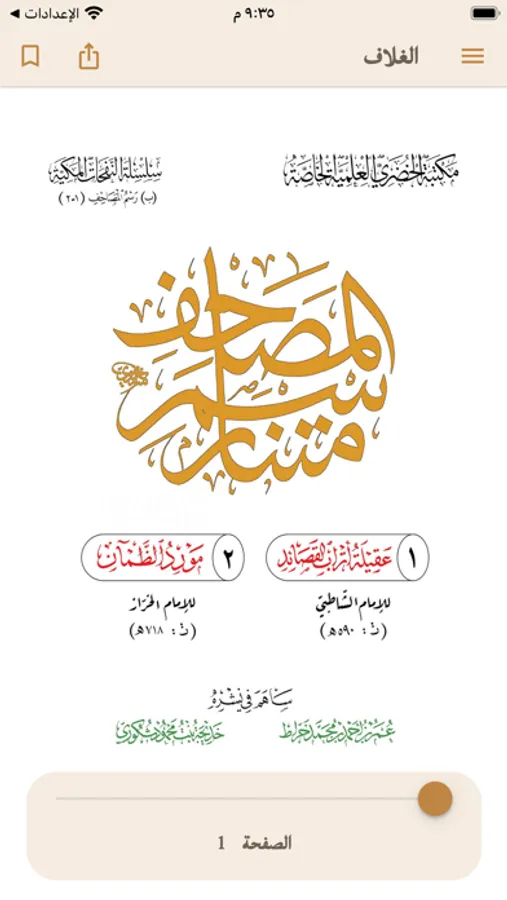 ٩:٣٥ م
الإعدادات
الغلاف
مكتبة الخضري العلمية الخاصة
سلسلة النفحات المكية
(ب) رسم المصاحف (٢٥١)
متنا رسم المصاحف
١ عَقِيلَةُ أَتْرَابِ القَصَائِدِ
للإمام الشَّاطِبيّ
(ت: ٥٩٠هـ)
٢ مَوْرِدُ الظَّمْآنِ
للإمام الخرَّاز
(ت: ٧١٨هـ)
سَاهَمَ فِي نَشْرِهِ
عمر بن أحمد بن محمد خراط
خديجة بنت محمود شكوري
الصفحة 1